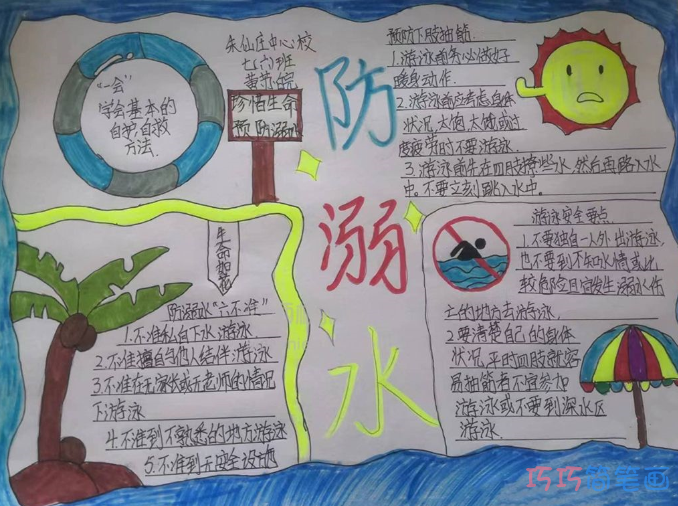 朱仙庄中心校
七六班
"一会"
学会基本的
自护自救
方法.
珍惜生命
预防溺水
防
溺
水
预防下肢抽筋
1.游泳前务必做好
暖身动作.
2.游泳前应考虑身体
状况,太饱,太饿或过
度疲劳时不要游泳.
3.游泳前先在四肢撩些水,然后再跳入水
中.不要立刻跳入水中。
生命如花
防溺水"六不准"
1.不准私自下水游泳
2.不准擅自与他人结伴游泳
3.不准在无家长或无老师的情况
下游泳
4.不准到不熟悉的地方游泳
5.不准到无安全设施
游泳安全要点
1.不要独自一人外出游泳,
也不要到不知水情或比
较 易发生溺水伤
亡的地方去游泳.
2.要清楚自己的身体
状况,平时四肢就容
易抽筋者不宜参加
游泳或不要到深水区
游泳.
巧巧简笔画